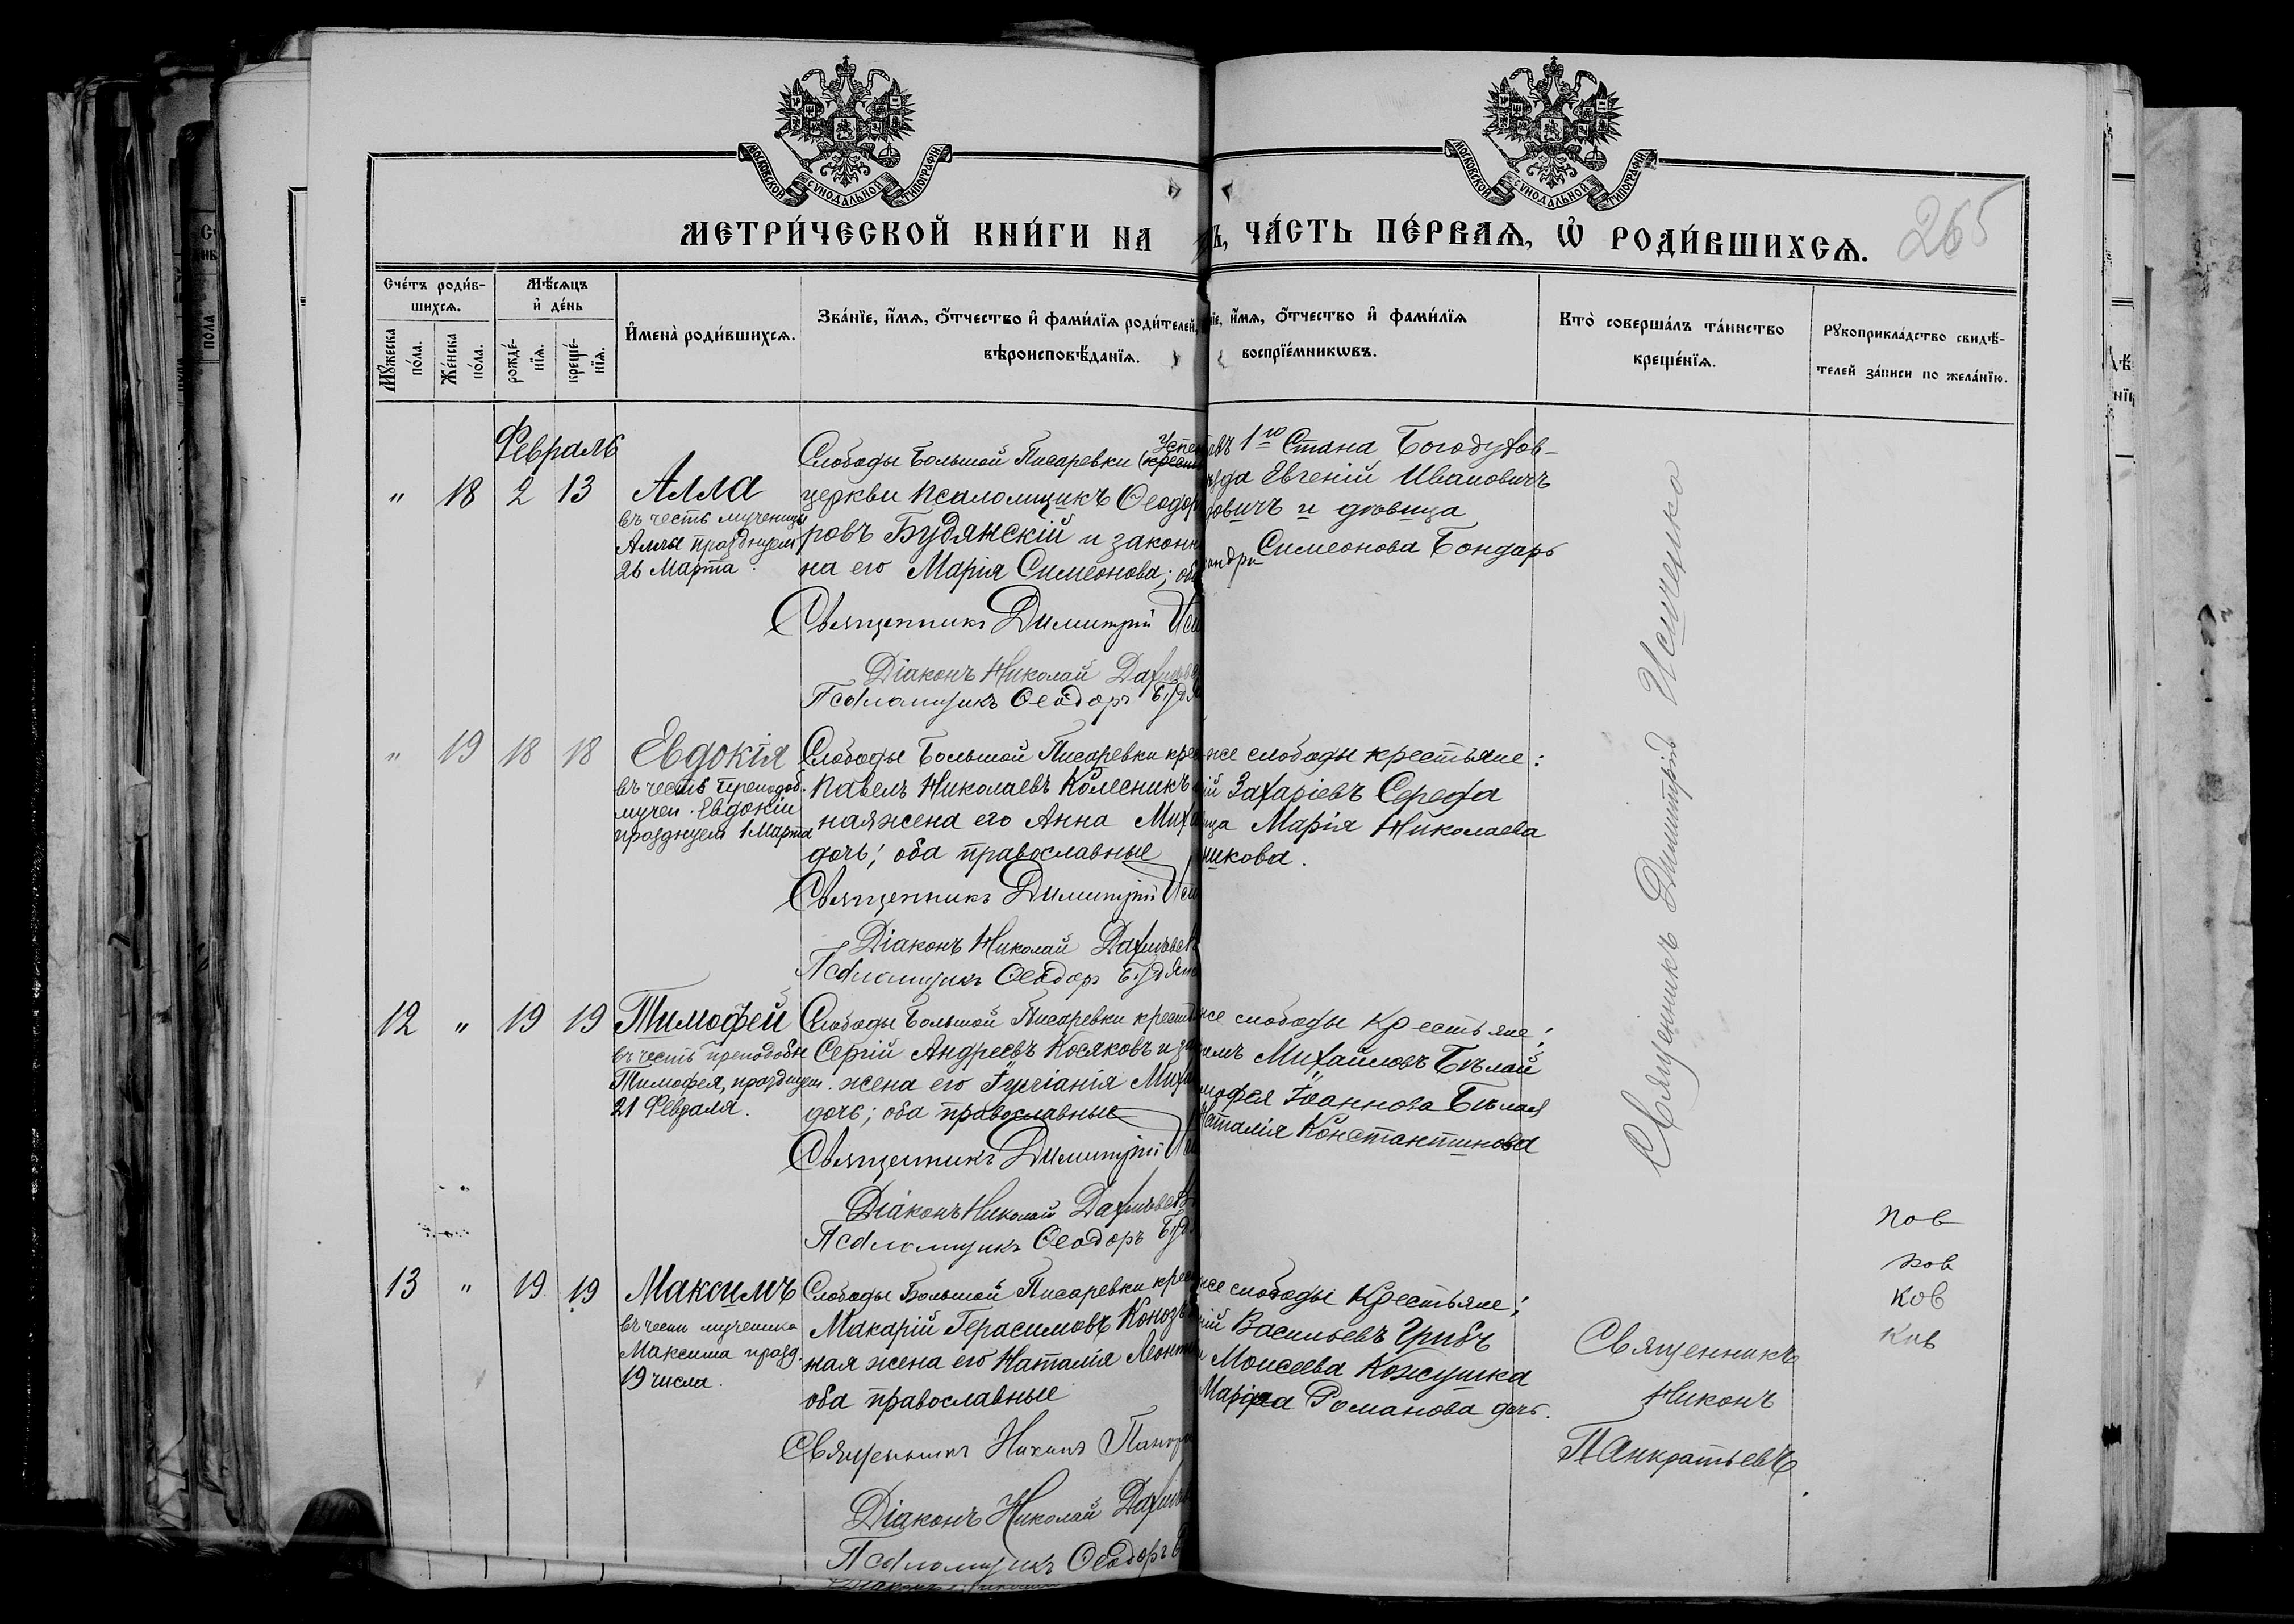 МОСКОВСКОЙ СѴНОДАЛЬНОЙ ТИПОГРАФІИ
МОСКОВСКОЙ СѴНОДАЛЬНОЙ ТИПОГРАФІИ
МЕТРИ́ЧЕСКОЙ КНИ́ГИ НА
Ъ, ЧА́СТЬ ПЕ́РВАѦ, Ѡ҆ РОДИ́ВШИХСѦ.
265
Сче́тъ роди́в-
шихсѧ.
Мꙋ́жеска по́ла.
Же́нска по́ла.
Мѣ́сѧцъ
и҆ де́нь
рожде́-
нїѧ.
креще́-
нїѧ.
И҆мена̀ роди́вшихсѧ.
Зва́нїе, и҆́мѧ, ѻ҆́тчество и҆ фами́лїѧ роди́телей,
вѣроисповѣ́данїѧ.
нїе, и҆́мѧ, ѻ҆́тчество и҆ фами́лїѧ
воспрїе́мникѡвъ.
Кто̀ соверша́лъ та́инство
креще́нїѧ.
Рꙋкоприкла́дство свидѣ́-
телей за́писи по жела́нїю.
Февраль
" 18 2 13 Алла
въ честь мученицы
Аллы празднуем
26 Марта.
Слободы Большой Писаревки
церкви псаломщикъ Ѳеодор
ровъ Будянскій и законн
на его Марія Симеонова; об
Священникъ Димитрій Иси
Діаконъ Николай
Псаломщикъ Ѳеодоръ Будя
1го Стана Богодухов-
зда Евгеній Ивановичъ
овичъ и дѣвица
андра Симеонова Бондарь
" 19 18 18 Евдокія
въ честь преподоб.
мучен. Евдокіи
празднуем 1 Марта
Слободы Большой Писаревки крес
Павелъ Николаевъ Колесникъ
ная жена его Анна Миха
дочь; оба православные
Священникъ Димитрій Иси
Діаконъ Николай
Псаломщикъ Ѳеодоръ Будян
же слободы крестьяне:
ій Захаріевъ Середа
ица Марія Николаева
никова.
12 " 19 19 Тимофей
въ честь преподобн
Тимофея, празднуем.
21 Февраля.
Слободы Большой Писаревки крестья
Сергій Андреевъ Косяковъ и за
жена его Іуліанія Миха
дочь; оба православные
Священникъ Димитрій Иси
Діаконъ Николай
Псаломщикъ Ѳеодоръ Будя
же слободы Крестьяне;
Михайловъ Бѣлай
мофея Іоаннова Бѣлая
Наталія Константинова
Священникъ Димитрій Исиченко
13 " 19 19 Максимъ
въ честь мученика
Максима празд.
19 числа.
Слободы Большой Писаревки крес
Макарій Герасимовъ
ная жена его Наталія Леонт
оба православные
Священникъ Никонъ Панкра
Діаконъ Николай
Псаломщикъ Ѳеодоръ
же слободы Крестьяне;
ній Васильевъ Грибъ
Моисеева Кожушка
Марія Романова дочь.
Священникъ
Никонъ
Панкратьевъ
пов
пов
ков
ков